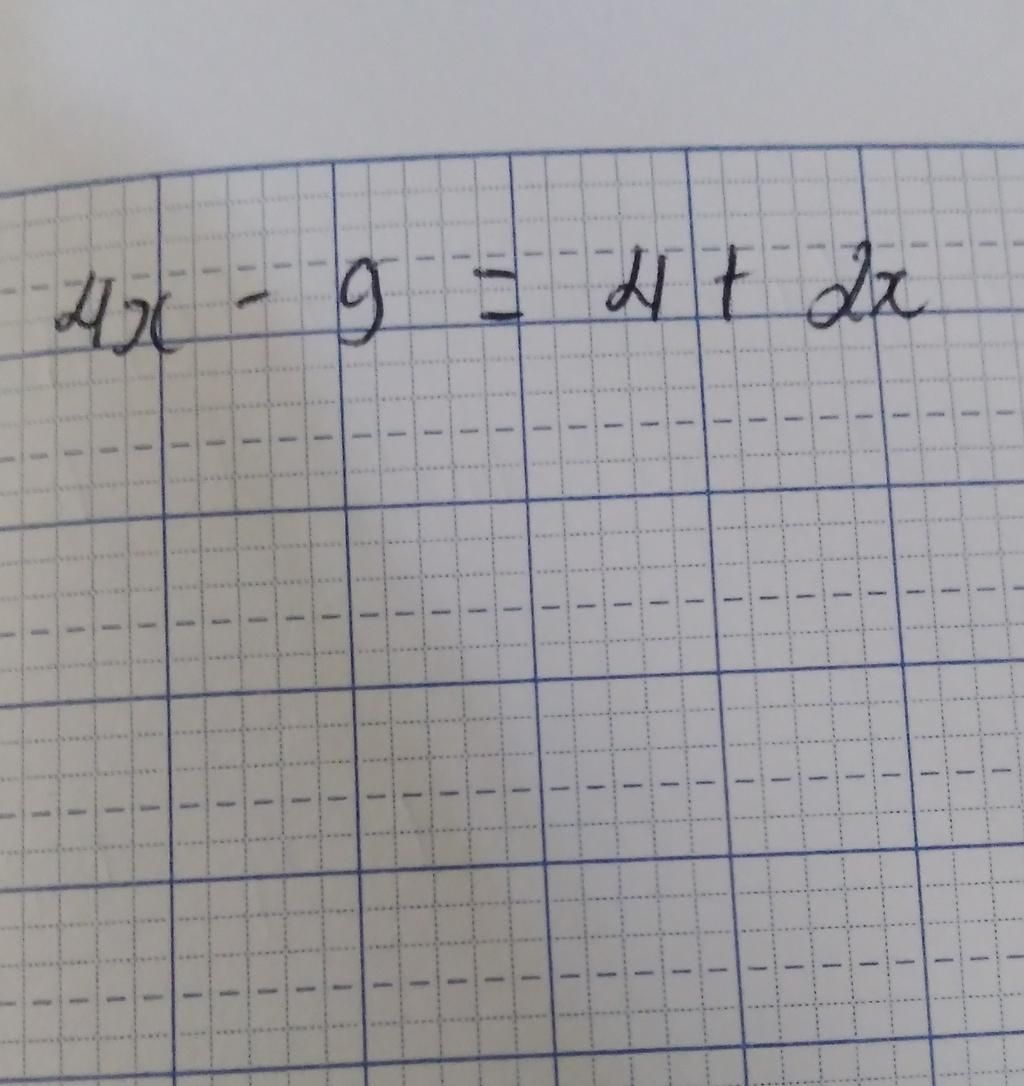 4x - 9 = 4 + 2x